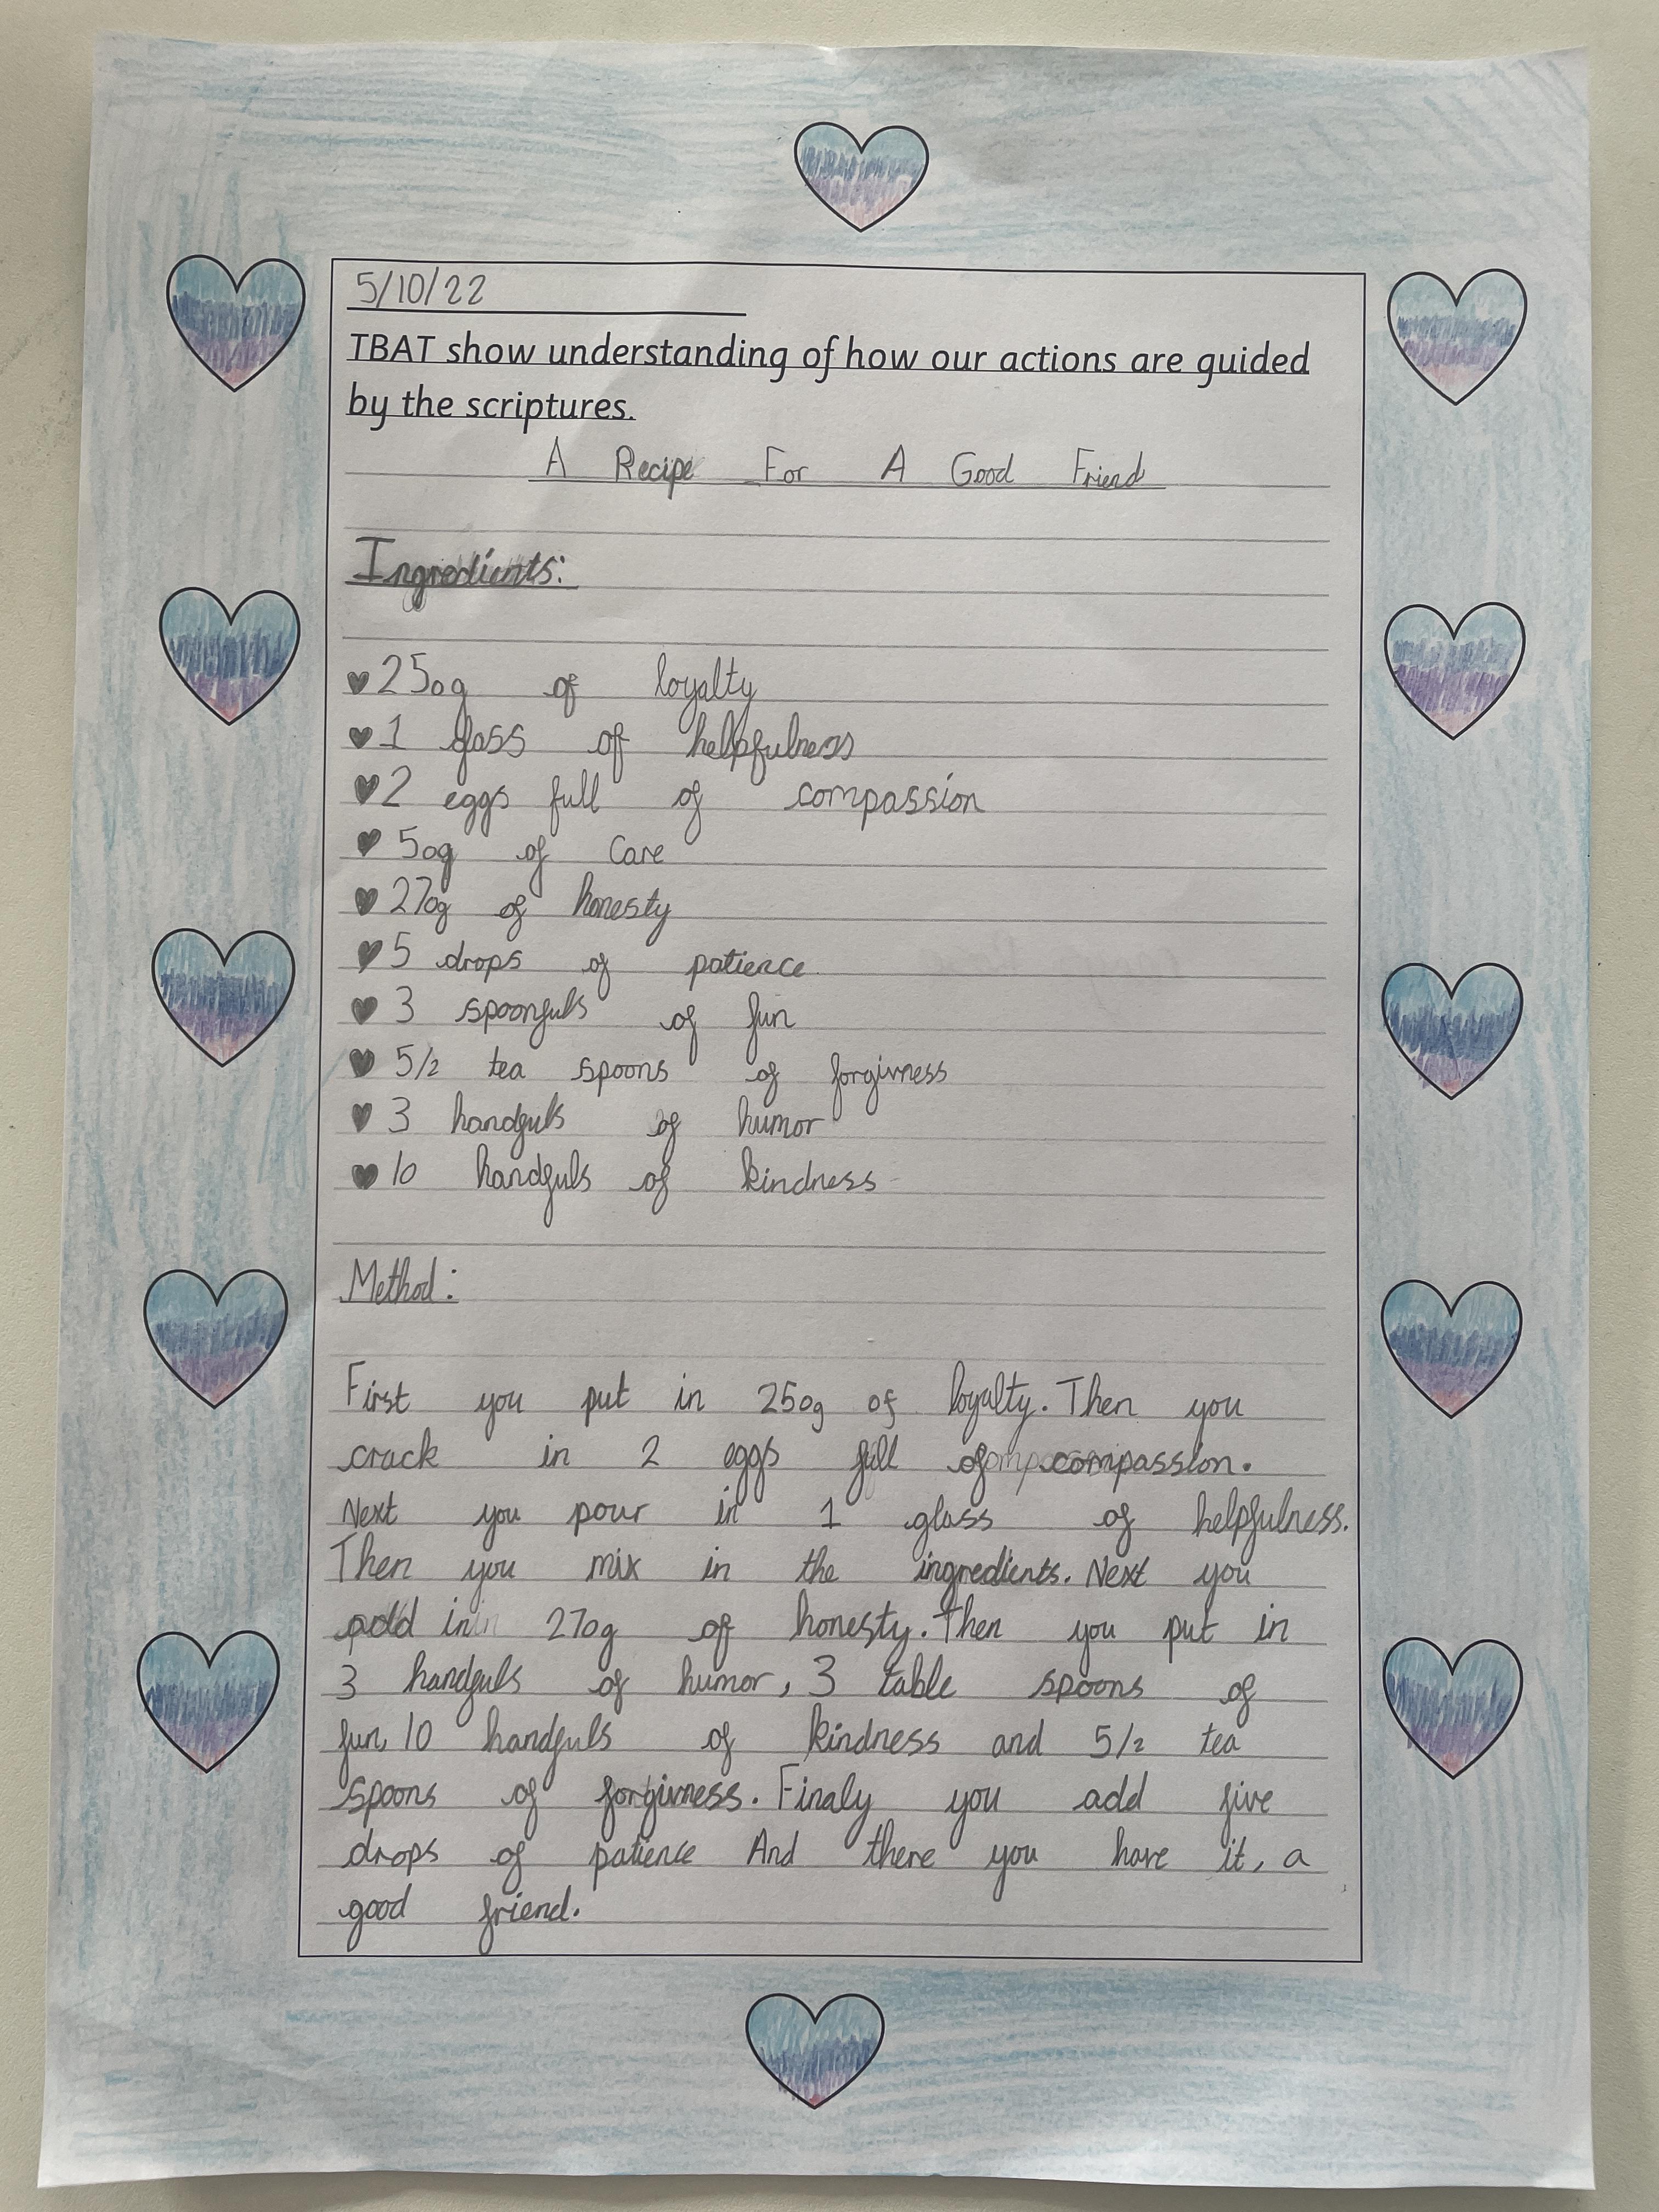 5/10/22
TBAT show understanding of how our actions are guided
by the scriptures.
A Recipe For A Good Friend
Ingredients:
250g of loyalty
1 glass of helpfulness
2 eggs full of compassion
50g of Care
270g of honesty
5 drops of patience
3 spoonfuls of fun
5/2 tea spoons of forgivness
3 handfuls of humor
10 handfuls of kindness
Method:
First you put in 250g of loyalty. Then you
crack in 2 eggs full of compassion.
Next you pour in 1 glass of helpfulness.
Then you mix in the ingredients. Next you
add in 270g of honesty. Then you put in
3 handfuls of humor, 3 table spoons of
fun, 10 handfuls of kindness and 5/2 tea
spoons of forgivness. Finaly you add five
drops of patience And there you have it, a
good friend.